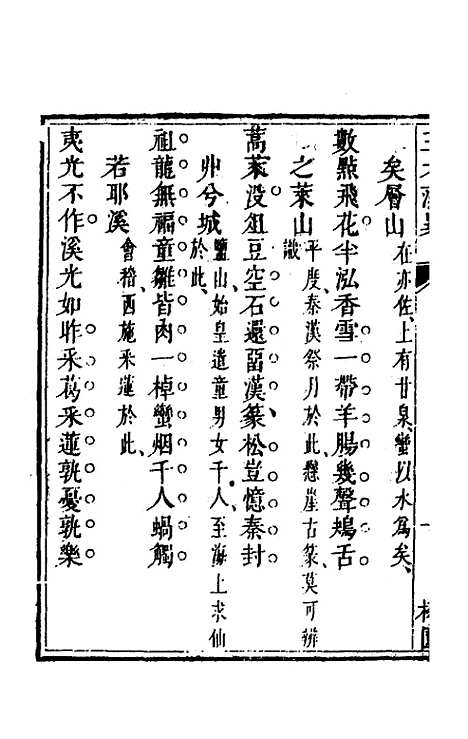 矣層山 在亦佐、上有甘泉、蠻以水為矣、
數點飛花半泓香雪一帶羊腸幾聲鴂舌
之萊山 平度、秦漢祭月於此、懸崖古篆、莫可辨識
蒿萊没俎豆空石還留漢篆、松豈憶秦封
丱兮城 鹽山、始皇遣童男女千人、至海上求仙於此、
祖龍無福童雛皆肉一棹蠻烟千人蝸觸
若耶溪 會稽、西施采蓮於此、
夷光不作溪光如昨采葛采蓮孰憂孰樂